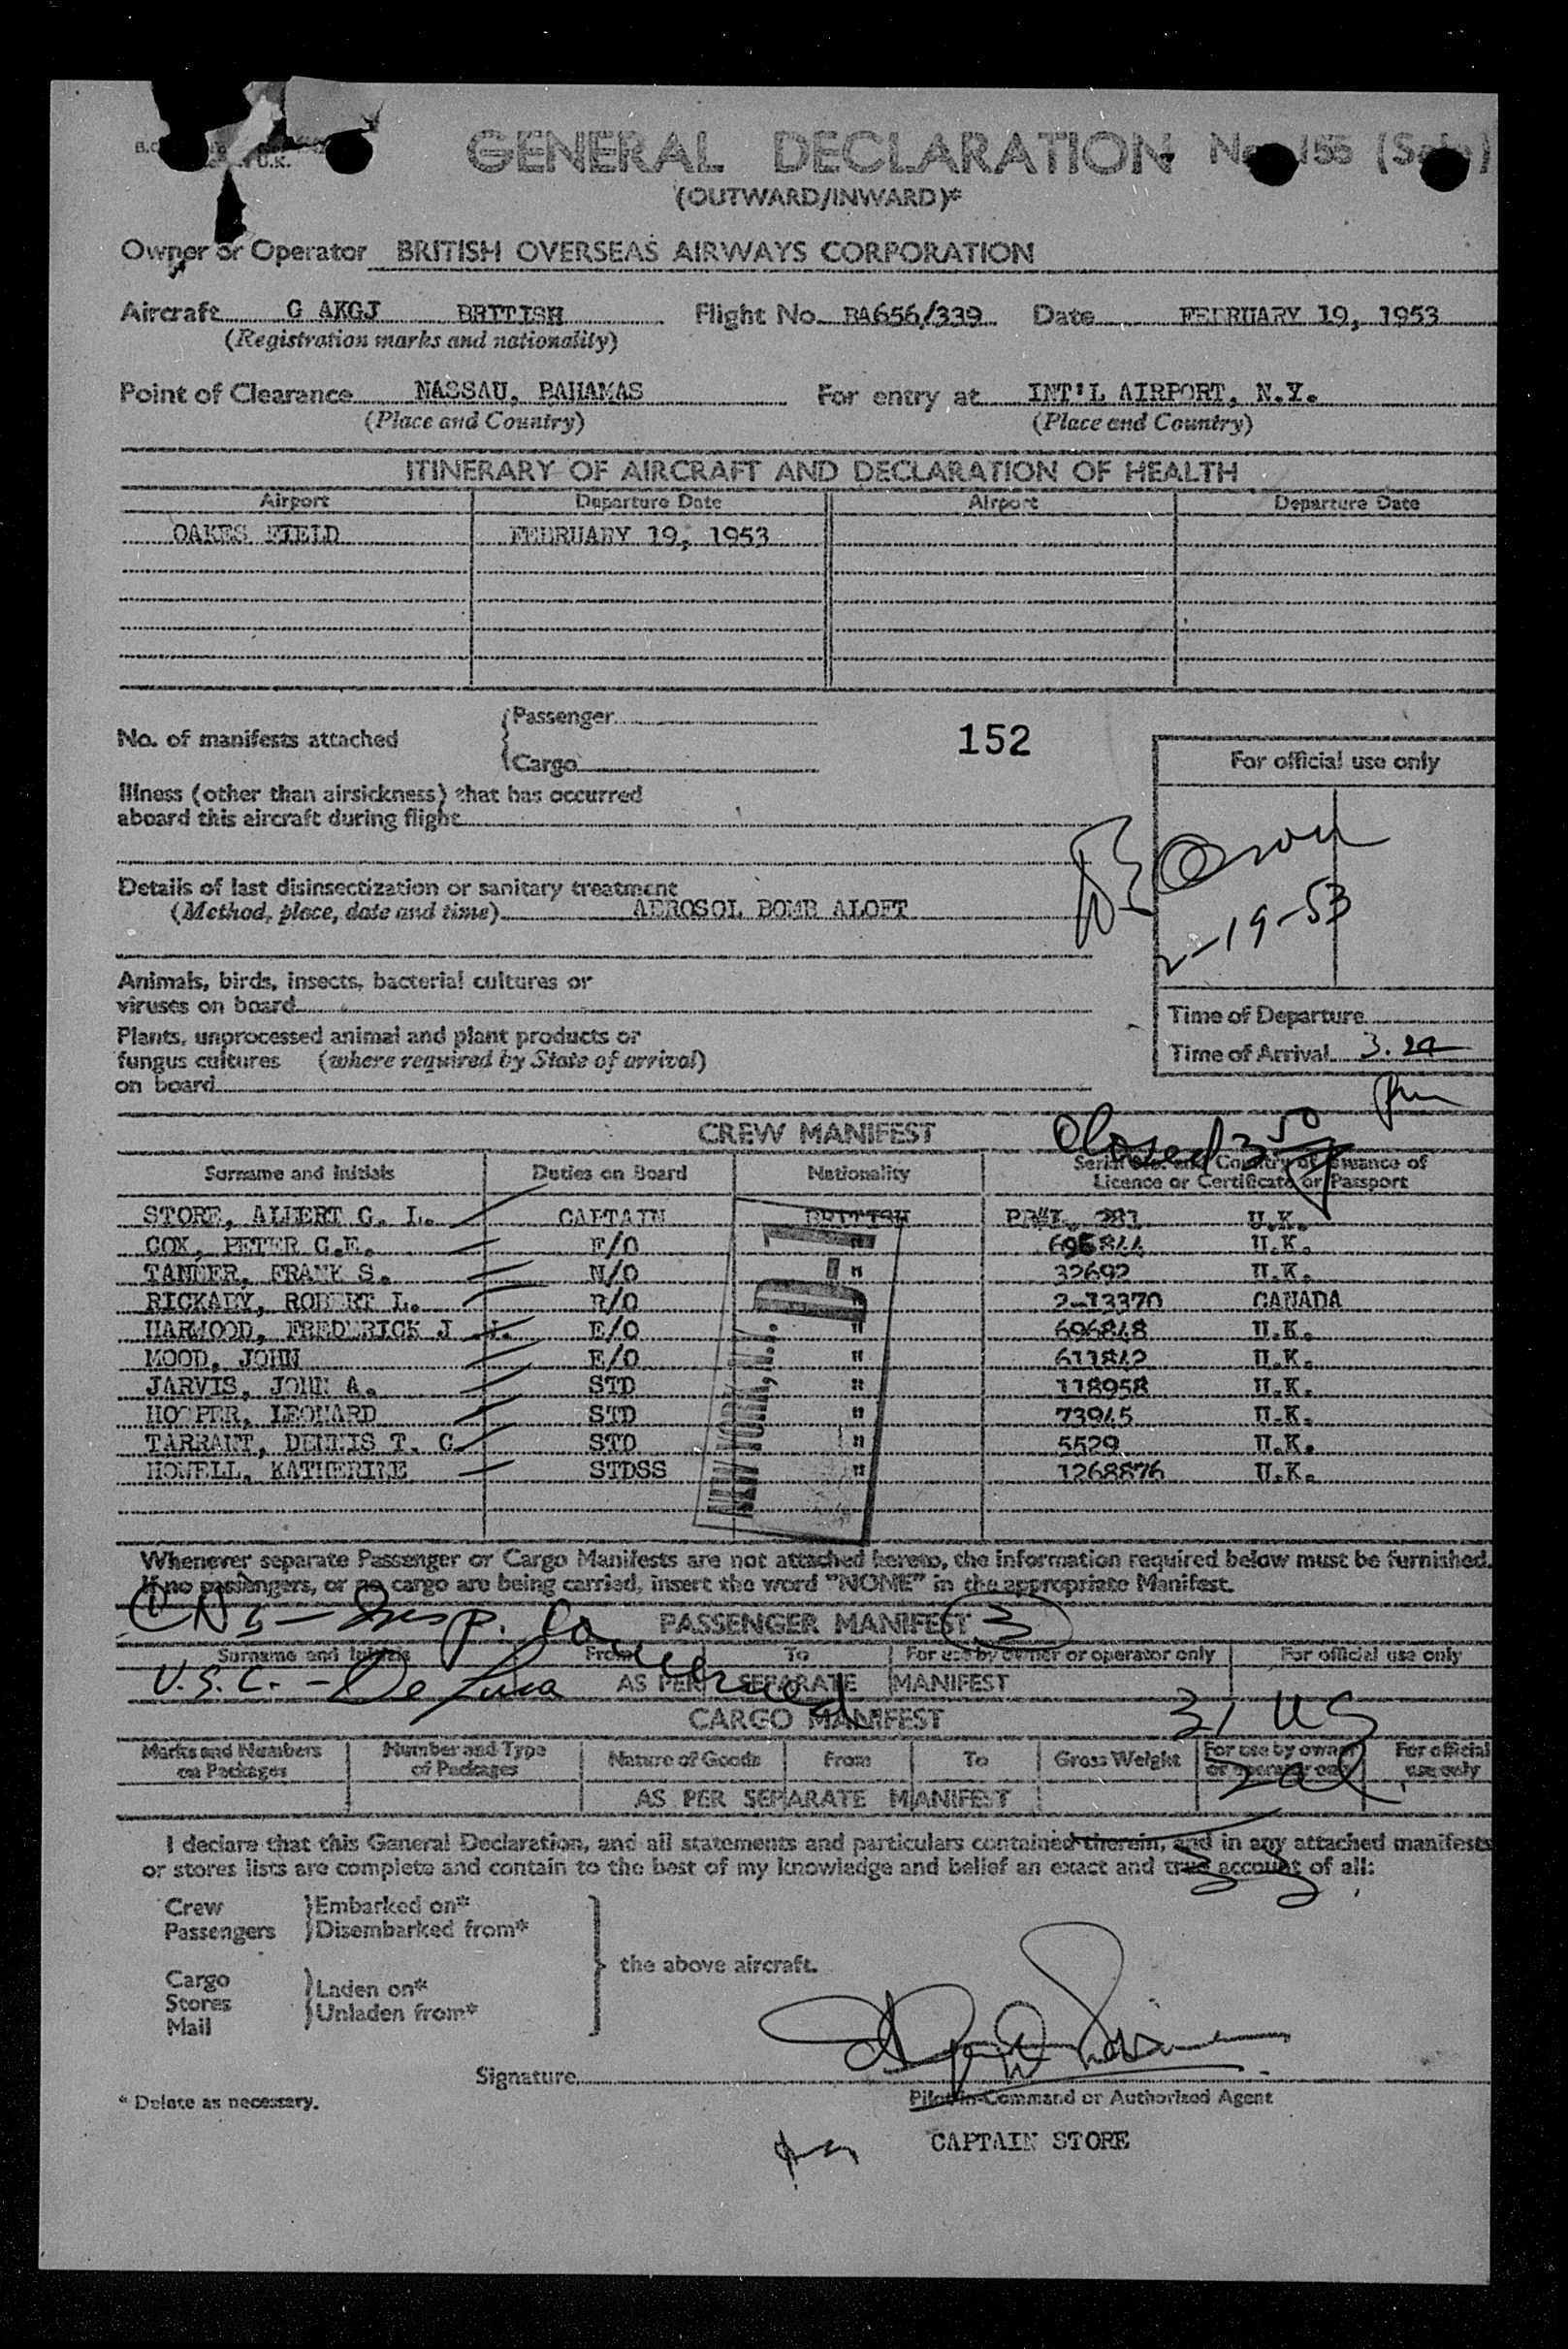 U.K.
GENERAL DECLARATION
(OUTWARD/INWARD)*
Owner or Operator BRITISH OVERSEAS AIRWAYS CORPORATION
Aircraft G AKGJ BRITISH Flight No. BA656/339 Date FEBRUARY 19, 1953
(Registration marks and nationality)
Point of Clearance NASSAU, BAHAMAS For entry at INT'L AIRPORT, N.Y.
(Place and Country) (Place and Country)
ITINERARY OF AIRCRAFT AND DECLARATION OF HEALTH
Airport Departure Date Airport Departure Date
OAKES FIELD FEBRUARY 19, 1953
No. of manifests attached
Passenger
Cargo
152
For official use only
Illness (other than airsickness) that has occurred
aboard this aircraft during flight
Details of last disinsectization or sanitary treatment
(Method, place, date and time) AEROSOL BOMB ALOFT
2-19-53
Animals, birds, insects, bacterial cultures or
viruses on board
Time of Departure
Plants, unprocessed animal and plant products or
fungus cultures (where required by State of arrival)
on board
Time of Arrival
pm
Closed 3 50
CREW MANIFEST
Surname and Initials Duties on Board Nationality Serial No. and Country of Issuance of
Licence or Certificate or Passport
STORE, ALBERT C. L. CAPTAIN BRITISH 281 U.K.
COX, PETER C.E. F/O " 696844 U.K.
TANNER, FRANK S. N/O " 32692 U.K.
RICKABY, ROBERT L. R/O " 2-13370 CANADA
HARWOOD, FREDERICK J .J. E/O " 696848 U.K.
MOOD, JOHN E/O " 611842 U.K.
JARVIS, JOHN A. STD " 118958 U.K.
HOOPER, LEONARD STD " 73945 U.K.
TARRANT, DENNIS T. C. STD " 5529 U.K.
HOWELL, KATHERINE STDSS " 1268876 U.K.
NEW YORK, N.Y.
Whenever separate Passenger or Cargo Manifests are not attached hereto, the information required below must be furnished.
If no passengers, or no cargo are being carried, insert the word "NONE" in the appropriate Manifest.
PASSENGER MANIFEST
3
Surname and Initials From To For use by owner or operator only For official use only
U.S.C. - De Luca
AS PER SEPARATE MANIFEST
31 US
CARGO MANIFEST
Marks and Numbers on Packages Number and Type of Packages Nature of Goods From To Gross Weight For use by owner or operator only For official use only
AS PER SEPARATE MANIFEST
I declare that this General Declaration, and all statements and particulars contained therein, and in any attached manifests
or stores lists are complete and contain to the best of my knowledge and belief an exact and true account of all:
33
Crew Embarked on*
Passengers Disembarked from*
the above aircraft.
Cargo
Stores
Mail
Laden on*
Unladen from*
Signature
* Delete as necessary.
Pilot-in-Command or Authorised Agent
CAPTAIN STORE